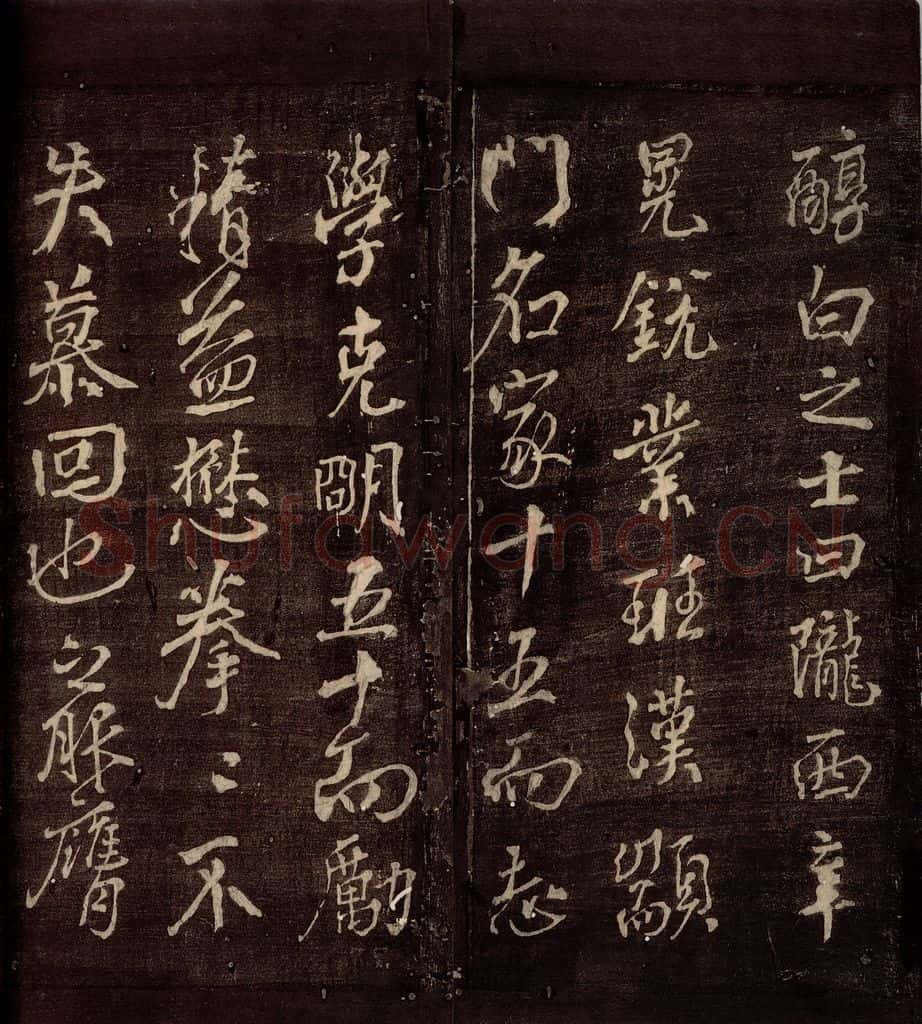 醇白之士曰隴西辛
晃銳業班漢顓
門名家十五而志
學克朙五十而勵
精益懋拳〻不
失慕回也之服膺
Shufawang.CN